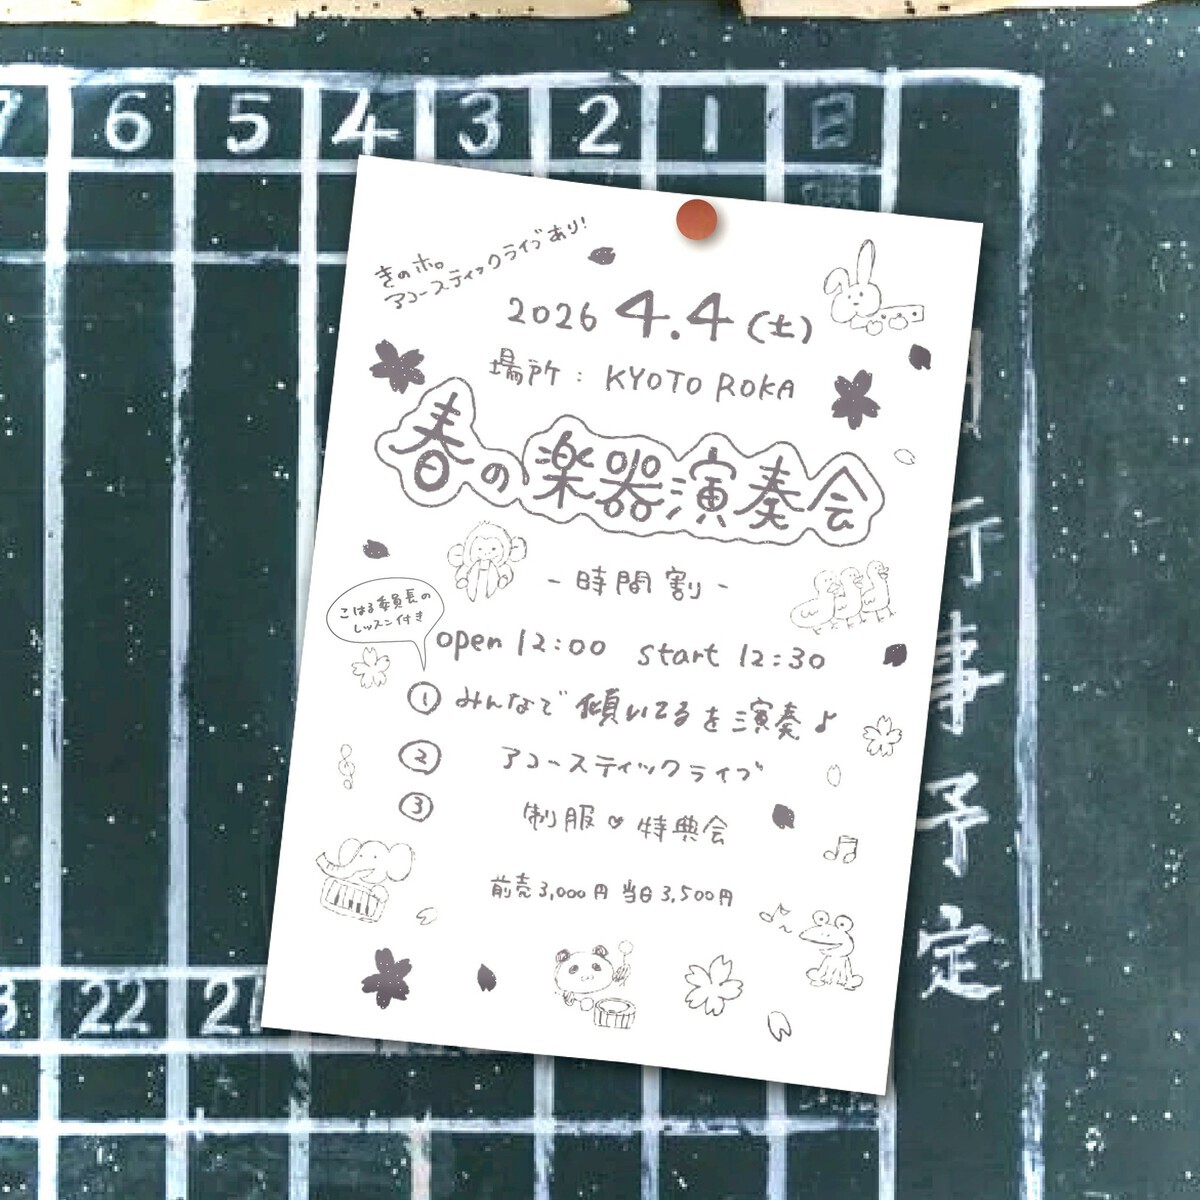 7 6 5 4 3 2 1 日
きのホ。
アコースティックライブあり!
2026 4.4(土)
場所:KYOTO ROKA
春の楽器演奏会
-時間割-
こはる委員長の
レッスン付き
open 12:00 start 12:30
① みんなで傾いてるを演奏♪
② アコースティックライブ
③ 制服♡特典会
前売3,000円 当日3,500円
22
行事予定